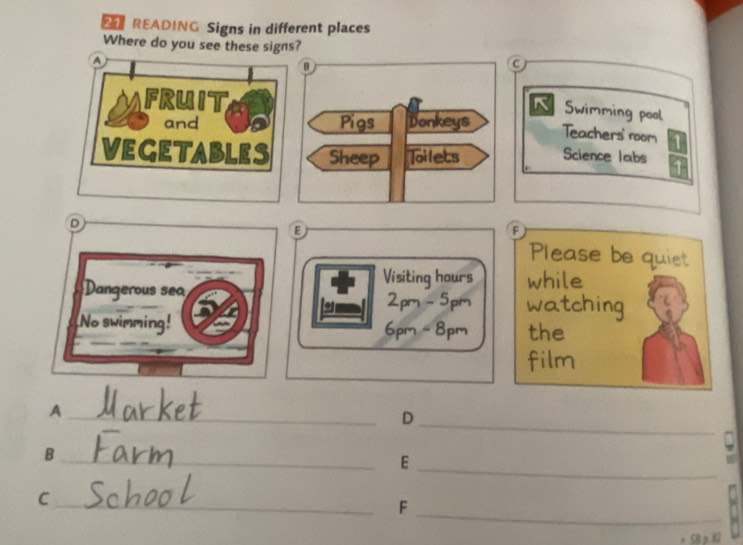 21 READING Signs in different places
Where do you see these signs?
A
FRUIT
and
VEGETABLES
B
Pigs Donkeys
Sheep Toilets
C
Swimming pool
Teachers' room
Science labs
D
Dangerous sea
No swimming!
E
Visiting hours
2pm - 5pm
6pm - 8pm
F
Please be quiet
while
watching
the
film
A Market
B Farm
C School
D
E
F